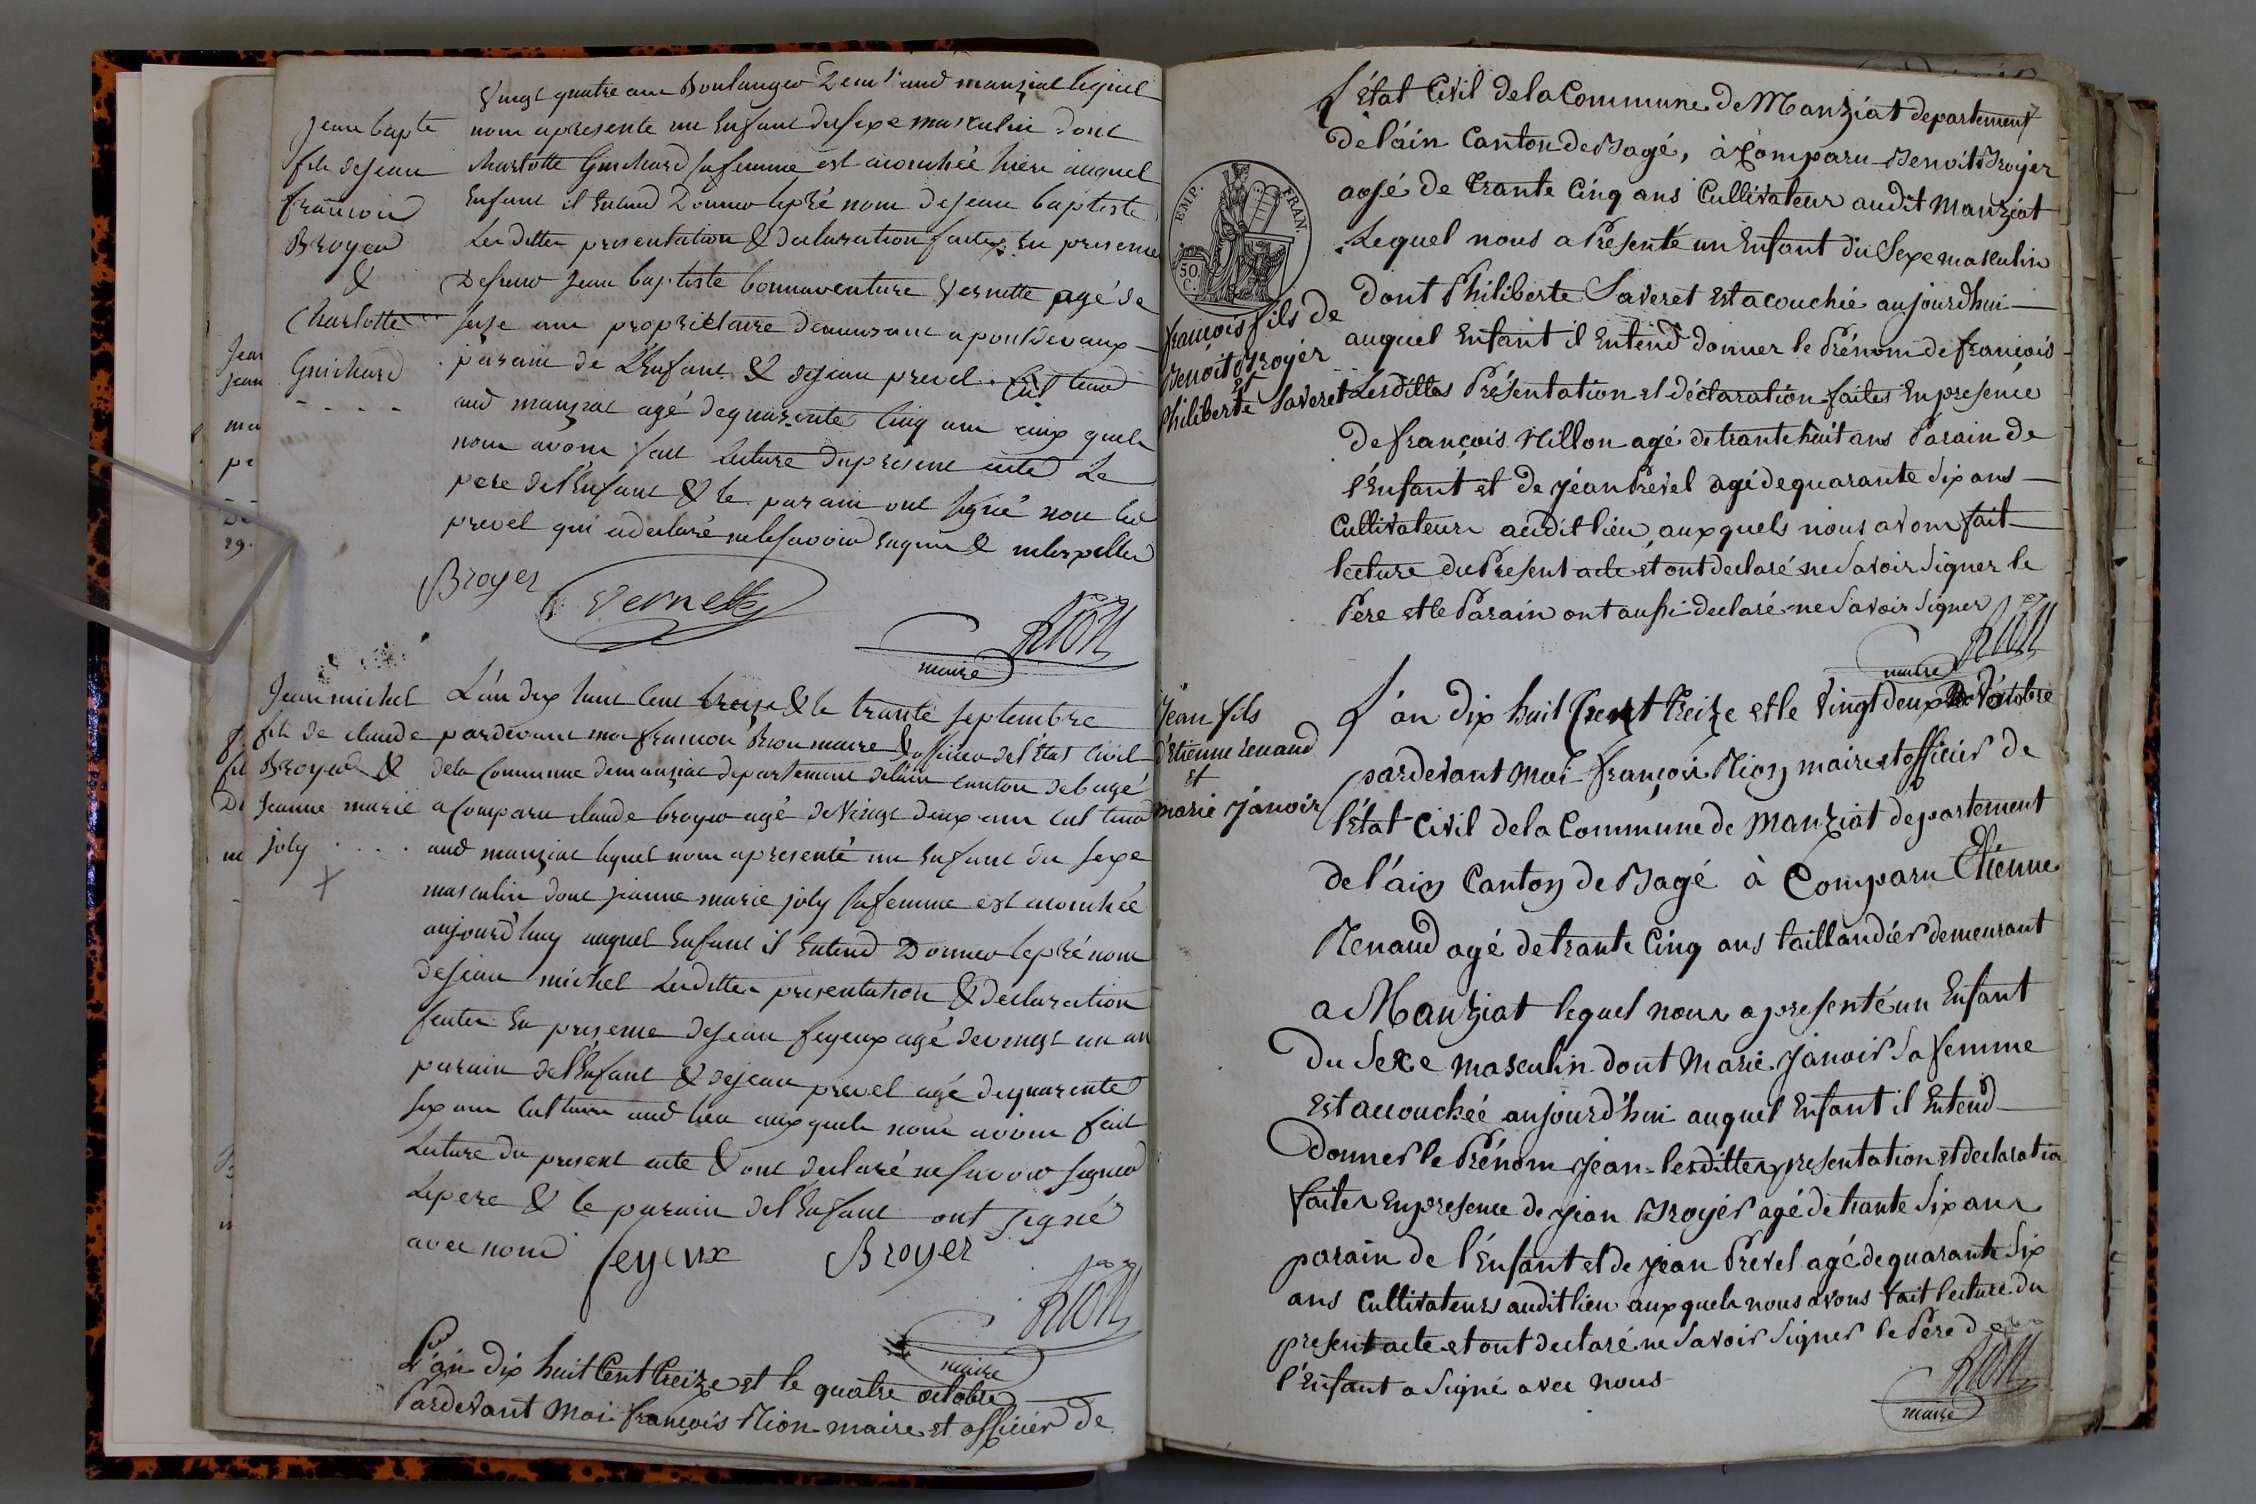 vingt quatre ans Boulanger Dem.t aud manziat lequel
nous apresente un Enfant du sexe masculin dont
charlotte Guichard sa femme est acouchée hier auquel
Enfant il Entend Donner le pré nom de jean baptiste
Les dittes presentation & declaration faites En presence
De sieur jean baptiste bonnaventure vernette agé de
seise ans propriétaire demeurant a pontdevaux
parain de L'Enfant & de jean prevel
aud manziat agé de quarente cinq ans aux quels
nous avons fait Lecture du present acte Le
pere de l'Enfant & le parain ont signé non led
prevel qui a declaré ne le savoir Enquis & interpellé
Jean bapte
fils de jean
françois
Broyer
&
Charlotte
Guichard
- - - -
Broyer
Vernette
Rion
maire
Jean michel
fils de claude
Broyer &
Jeanne marie
joly . . . .
L'an dix huit cent treize & le trante septembre
pardevant moi françois Rion maire & officier de l'état civil
de la commune de manziat departement de lain canton de bagé
a comparu claude broyer agé de vingt deux ans
aud manziat lequel nous apresenté un Enfant du sexe
masculin dont jeanne marie joly sa femme est acouchée
aujourd'huy auquel Enfant il Entend Donner le prénom
de jean michel Les dittes presentation & declaration
faites En presence de jean feyeux agé de vingt un an
parain de l'Enfant & de jean prevel agé de quarente
six ans aud lieu aux quels nous avons fait
Lecture du present acte & ont declaré ne savoir signer
Le pere & le parain de l'Enfant ont signé
avec nous
feyeux
Broyer
Rion
maire
L'an dix huit Cent treize et le quatre octobre
Pardevant Moi françois Rion maire et officier de
l'état Civil de la Commune de Manziat departement
de l'ain Canton de Bagé, à Comparu Benoit Broyer
agé de trante Cinq ans Cultivateur audit Manziat
Lequel nous a Présenté un Enfant du Sexe masculin
dont Philiberte Saveret est acouchée aujourdhui
auquel Enfant il Entend donner le Prénom de françois
Lesdittes Présentation et déclaration faites En presence
de françois Nillon agé de trante huit ans Parain de
l'Enfant et de Jean Prevel agé de quarante six ans
Cultivateurs audit lieu, auxquels nous avons fait
lecture du Présent acte et ont declaré ne Savoir Signer le
Pere et le Parain ont aussi declaré ne Savoir Signer
EMP. FRAN.
50.
C.
françois fils de
Benoit Broyer
et
Philiberte Saveret
Rion
maire
Jean fils
d'Etienne renaud
et
marie Janoir
L'an dix huit Cent treize et le vingt deux Octobre
pardevant Moi françois Rion maire et officier de
l'état Civil de la Commune de Manziat departement
de l'ain Canton de Bagé à Comparu Etienne
Renaud agé de trante Cinq ans taillandier demeurant
a Manziat lequel nous a presenté un Enfant
du Sexe masculin dont Marie Janoir Sa femme
est acouchée aujourd'hui auquel Enfant il Entend
donner le Prénom Jean lesdittes presentation et declaration
faites En presence de Jean Broyer agé de trante Six ans
parain de l'Enfant et de Jean Prevel agé de quarante Six
ans Cultivateurs audit lieu auxquels nous avons fait lecture du
present acte et ont declaré ne Savoir Signer le Pere de
l'Enfant a Signé avec nous
Rion
maire